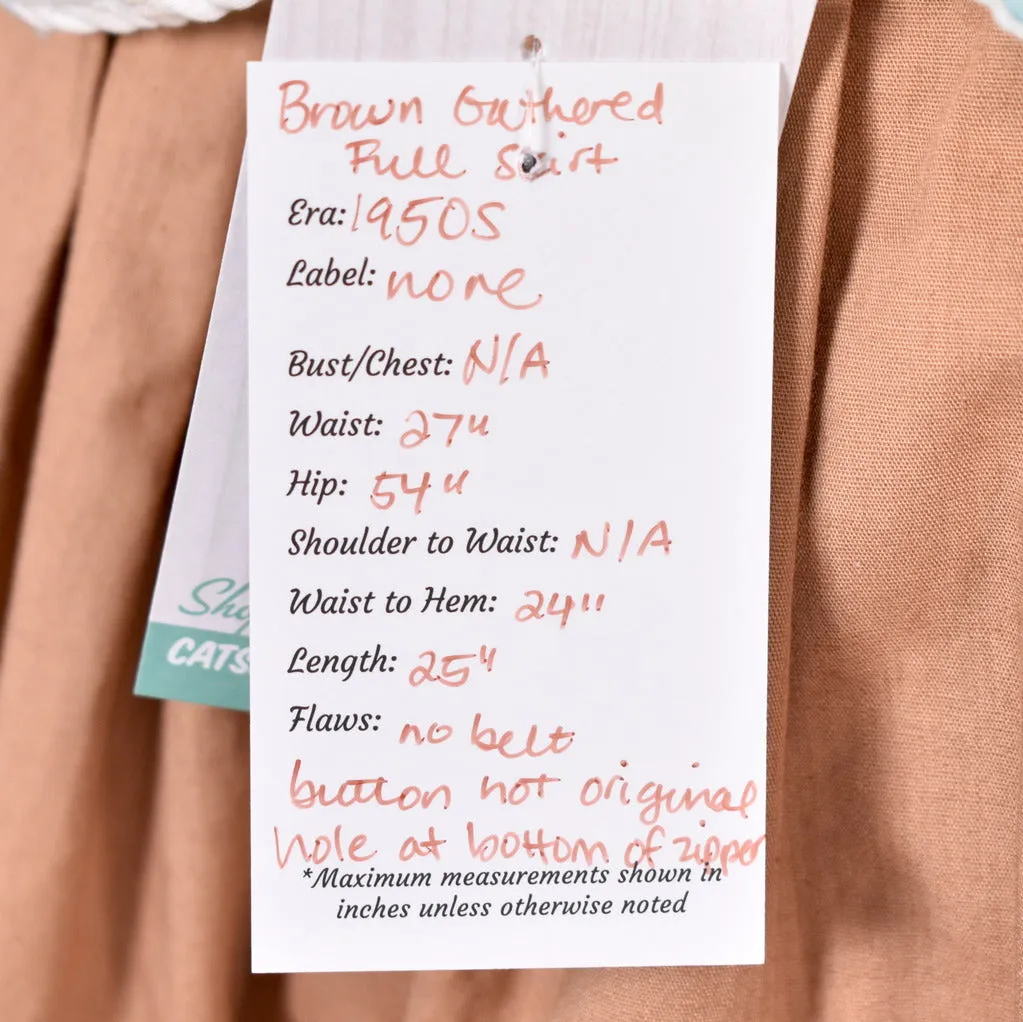 Brown Gathered
Full Skirt
Era: 1950s
Label: none
Bust/Chest: N/A
Waist: 27"
Hip: 54"
Shoulder to Waist: N/A
Waist to Hem: 24"
Length: 25"
Flaws: no belt
button not original
hole at bottom of zipper
*Maximum measurements shown in
inches unless otherwise noted
CATS